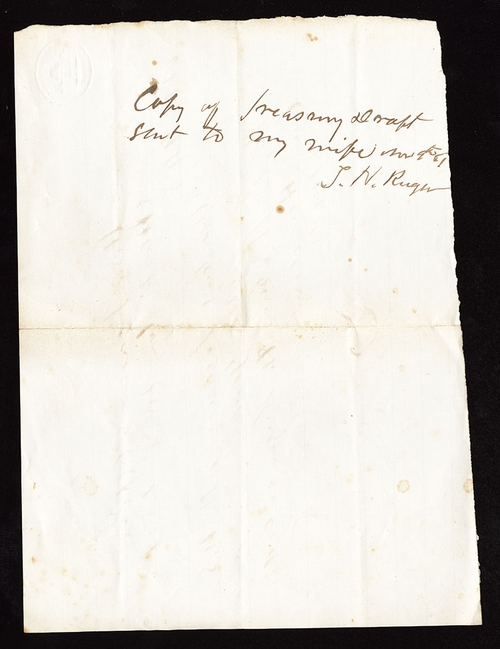 Copy of Treasury Draft
sent to my wife Nov 9th/61
T. H. Ruger